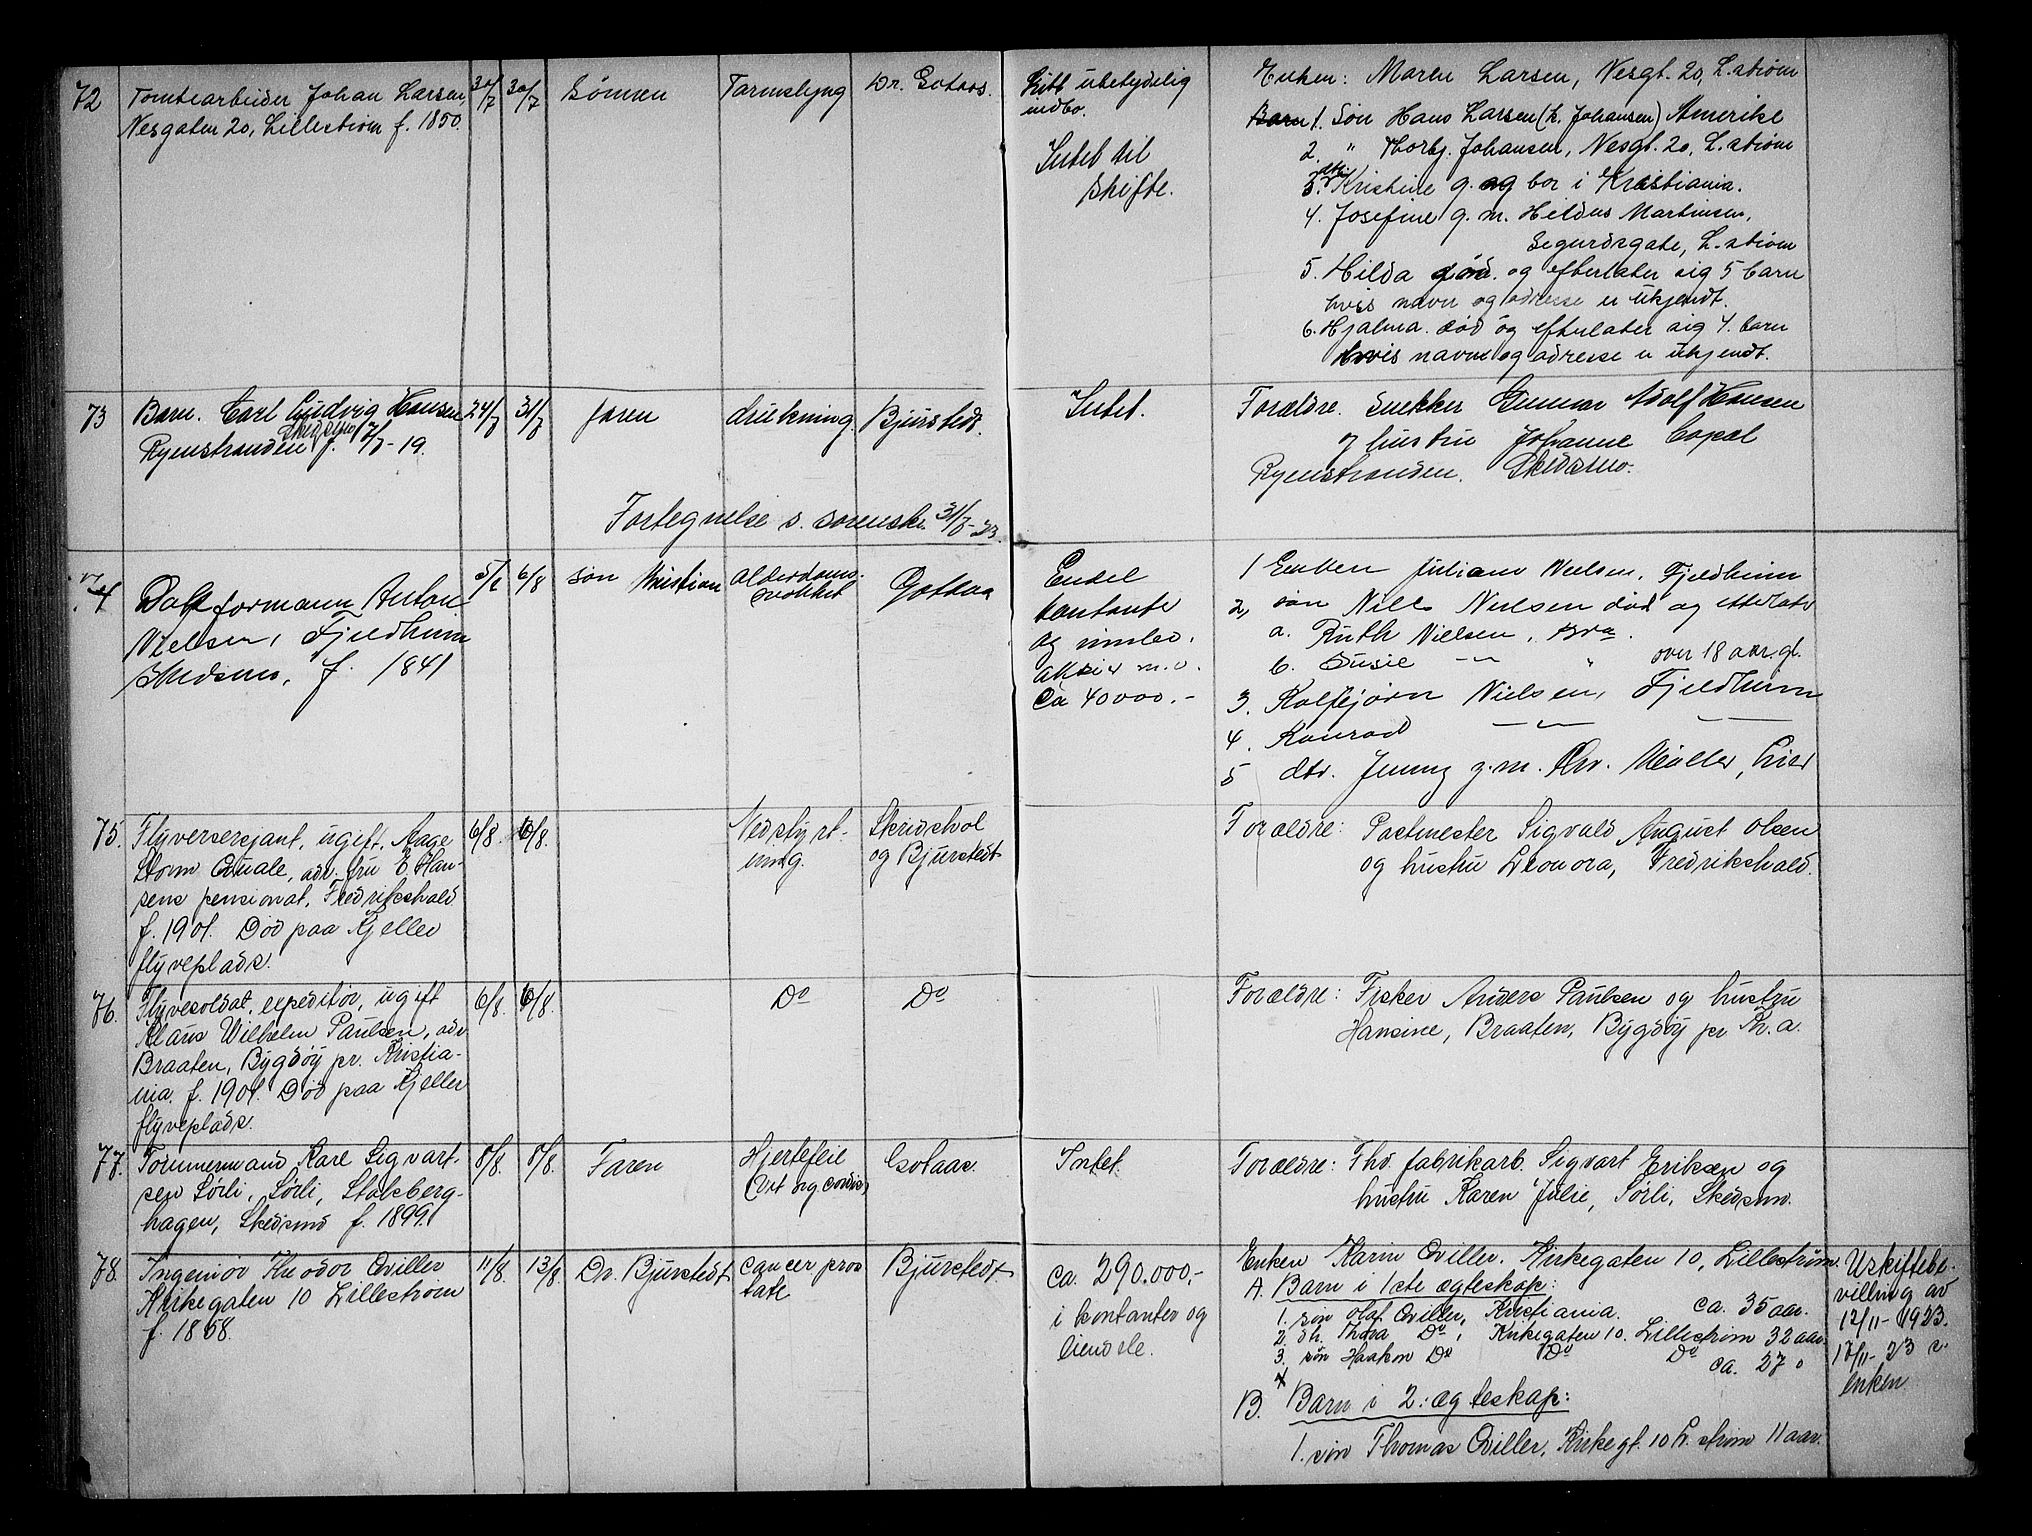 72
Tomtearbeider Johan Larsen
Nesgaten 20, Lillestrøm f. 1850.
30/7
30/7
Sønnen
Tarmslyng
Dr. Gotaas.
Litt ubetydelig
indbo.
Intet til
skifte.
Enken: Maren Larsen, Nesgt. 20, L.strøm
Barn 1. Søn Hans Larsen (h. Johansen) Amerike
2. " Thorbj. Johansen, Nesgt. 20, L.strøm
3. dtr. Kristine g. og bor i Kristiania.
4. Josefine g. m. Hildus Martinsen,
Sigurdsgate, L.strøm
5. Hilda død. og efterlater sig 5 barn
hvis navn og adresse er ukjendt.
6. Hjalma. død og efterlater sig 4. barn
hvis navn og adresse er ukjendt.
73
Barn. Carl Ludvig Hansen
Skedsmo
Rynstranden f. 7/7-19.
24/7
31/7
faren
drukning.
Bjurstedt.
Intet.
Forældre. Snekker Gunnar Adolf Hansen
og hustru Johanne Copal
Rynstranden. Skedsmo.
Fortegnelse s. sorenskr. 31/7-23.
74
formann Anton
Nielsen, Fjeldheim
Skedsmo, f. 1841
5/8
6/8
søn Kristian
alderdoms-
svakhet
Gotaas
Endel
kontante
og innbo.
aksier m.v.
Ca 40000.-
1 Enken Juliane Nielsen, Fjeldheim
2, søn Nils Nielsen død og etterlater
a. Ruth Nielsen,
b. Susie — " over 18 aar. gl.
3. Rolf Bjørn Nielsen, Fjeldheim
4. Konrad — —
5 dtr. Jenny g.m. Chr. Møller, Lier
75.
Flyversersjant, ugift, Aage
Storm Qvale, adr. fru E. Han-
sens pensionat, Fredrikshald
f. 1901. Død paa Kjeller
flyveplads.
6/8.
6/8.
Nedstyrt-
ning.
Skridshol
og Bjurstedt
Forældre: Postmester Sigvald August Olsen
og hustru Leonora, Fredrikshald.
76.
Flyvesoldat, expeditør, ugift
Klaus Wilhelm Paulsen, adr.
Braaten, Bygdøy pr. Kristia-
nia. f. 1901. Død paa Kjeller
flyveplads.
6/8.
6/8.
Do
Do
Forældre: Fisker Anders Paulsen og hustru
Hansine, Braaten, Bygdøy pr. Kr.a.
77.
Tømmermand Kare Sigvart-
sen Sørli, Sørli, Stalsberg-
hagen, Skedsmo f. 1899.
8/8.
8/8.
Faren
Hjertefeil
(Vit. org. cordis)
Gotaas.
Intet.
Forældre: Fhv. fabrikarb. Sigvart Eriksen og
hustru Karen Julie, Sørli, Skedsmo.
78.
Ingeniør Theodor Qviller
Kirkegaten 10 Lillestrøm
f. 1858.
11/8.
13/8.
Dr. Bjurstedt
cancer pros
tate
Bjurstedt
ca. 290.000,-
i kontanter og
eiendele.
Enken Karin Qviller. Kirkegaten 10, Lillestrøm.
A. Barn i 1ste egteskap:
1. søn Olaf Qviller, Kristiania. ca. 35 aar.
2. dtr. Thora Do , Kirkegaten 10. Lillestrøm 32 aar.
3. søn Haakon Do Do Do ca. 27 "
B. Barn i 2: egteskap:
1. søn Thomas Qviller, Kirkegt. 10 L.strøm 11 aar.
Uskiftebe-
villing av
12/11-1923.
17/11-23 s.
enken